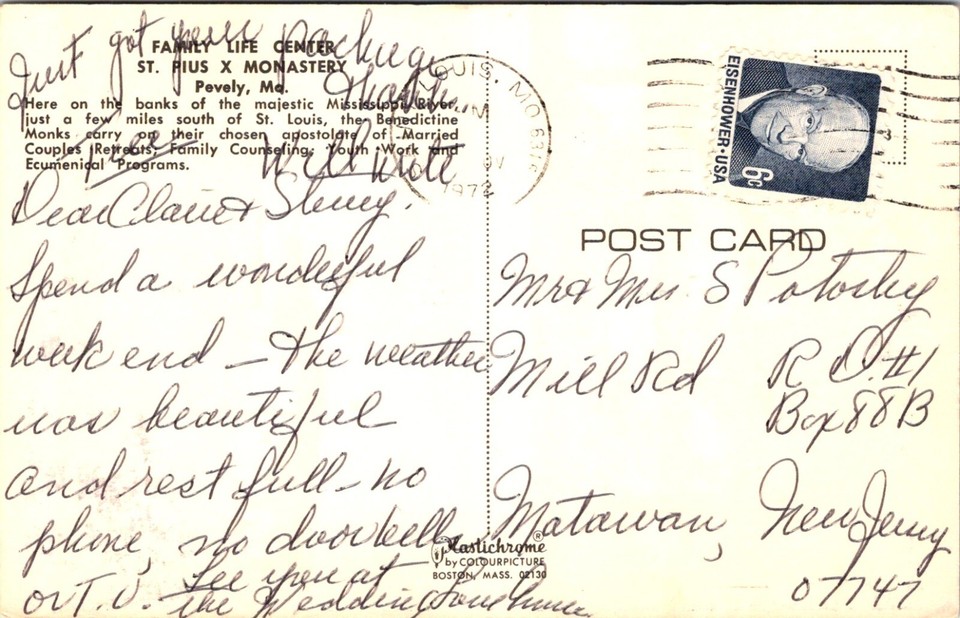 Just got your package
Thank
Will write
FAMILY LIFE CENTER
ST. PIUS X MONASTERY
Pevely, Mo.
Here on the banks of the majestic Mississippi River,
just a few miles south of St. Louis, the Benedictine
Monks carry on their chosen apostolate of Married
Couples Retreats, Family Counseling, Youth Work and
Ecumenical Programs.
Dear Claire &
Spend a wonderful
week end – the weather
was beautiful
and restfull – no
phone, no doorbells
or T.V.
See you at
the Wedding Love
LOUIS, MO
1972
EISENHOWER·USA
6c
POST CARD
Mr & Mrs. S Potosky
Mill Rd R D. #1
Box 88B
Matawan, New Jersey
07747
Plastichrome®
by COLOURPICTURE
BOSTON, MASS. 02130